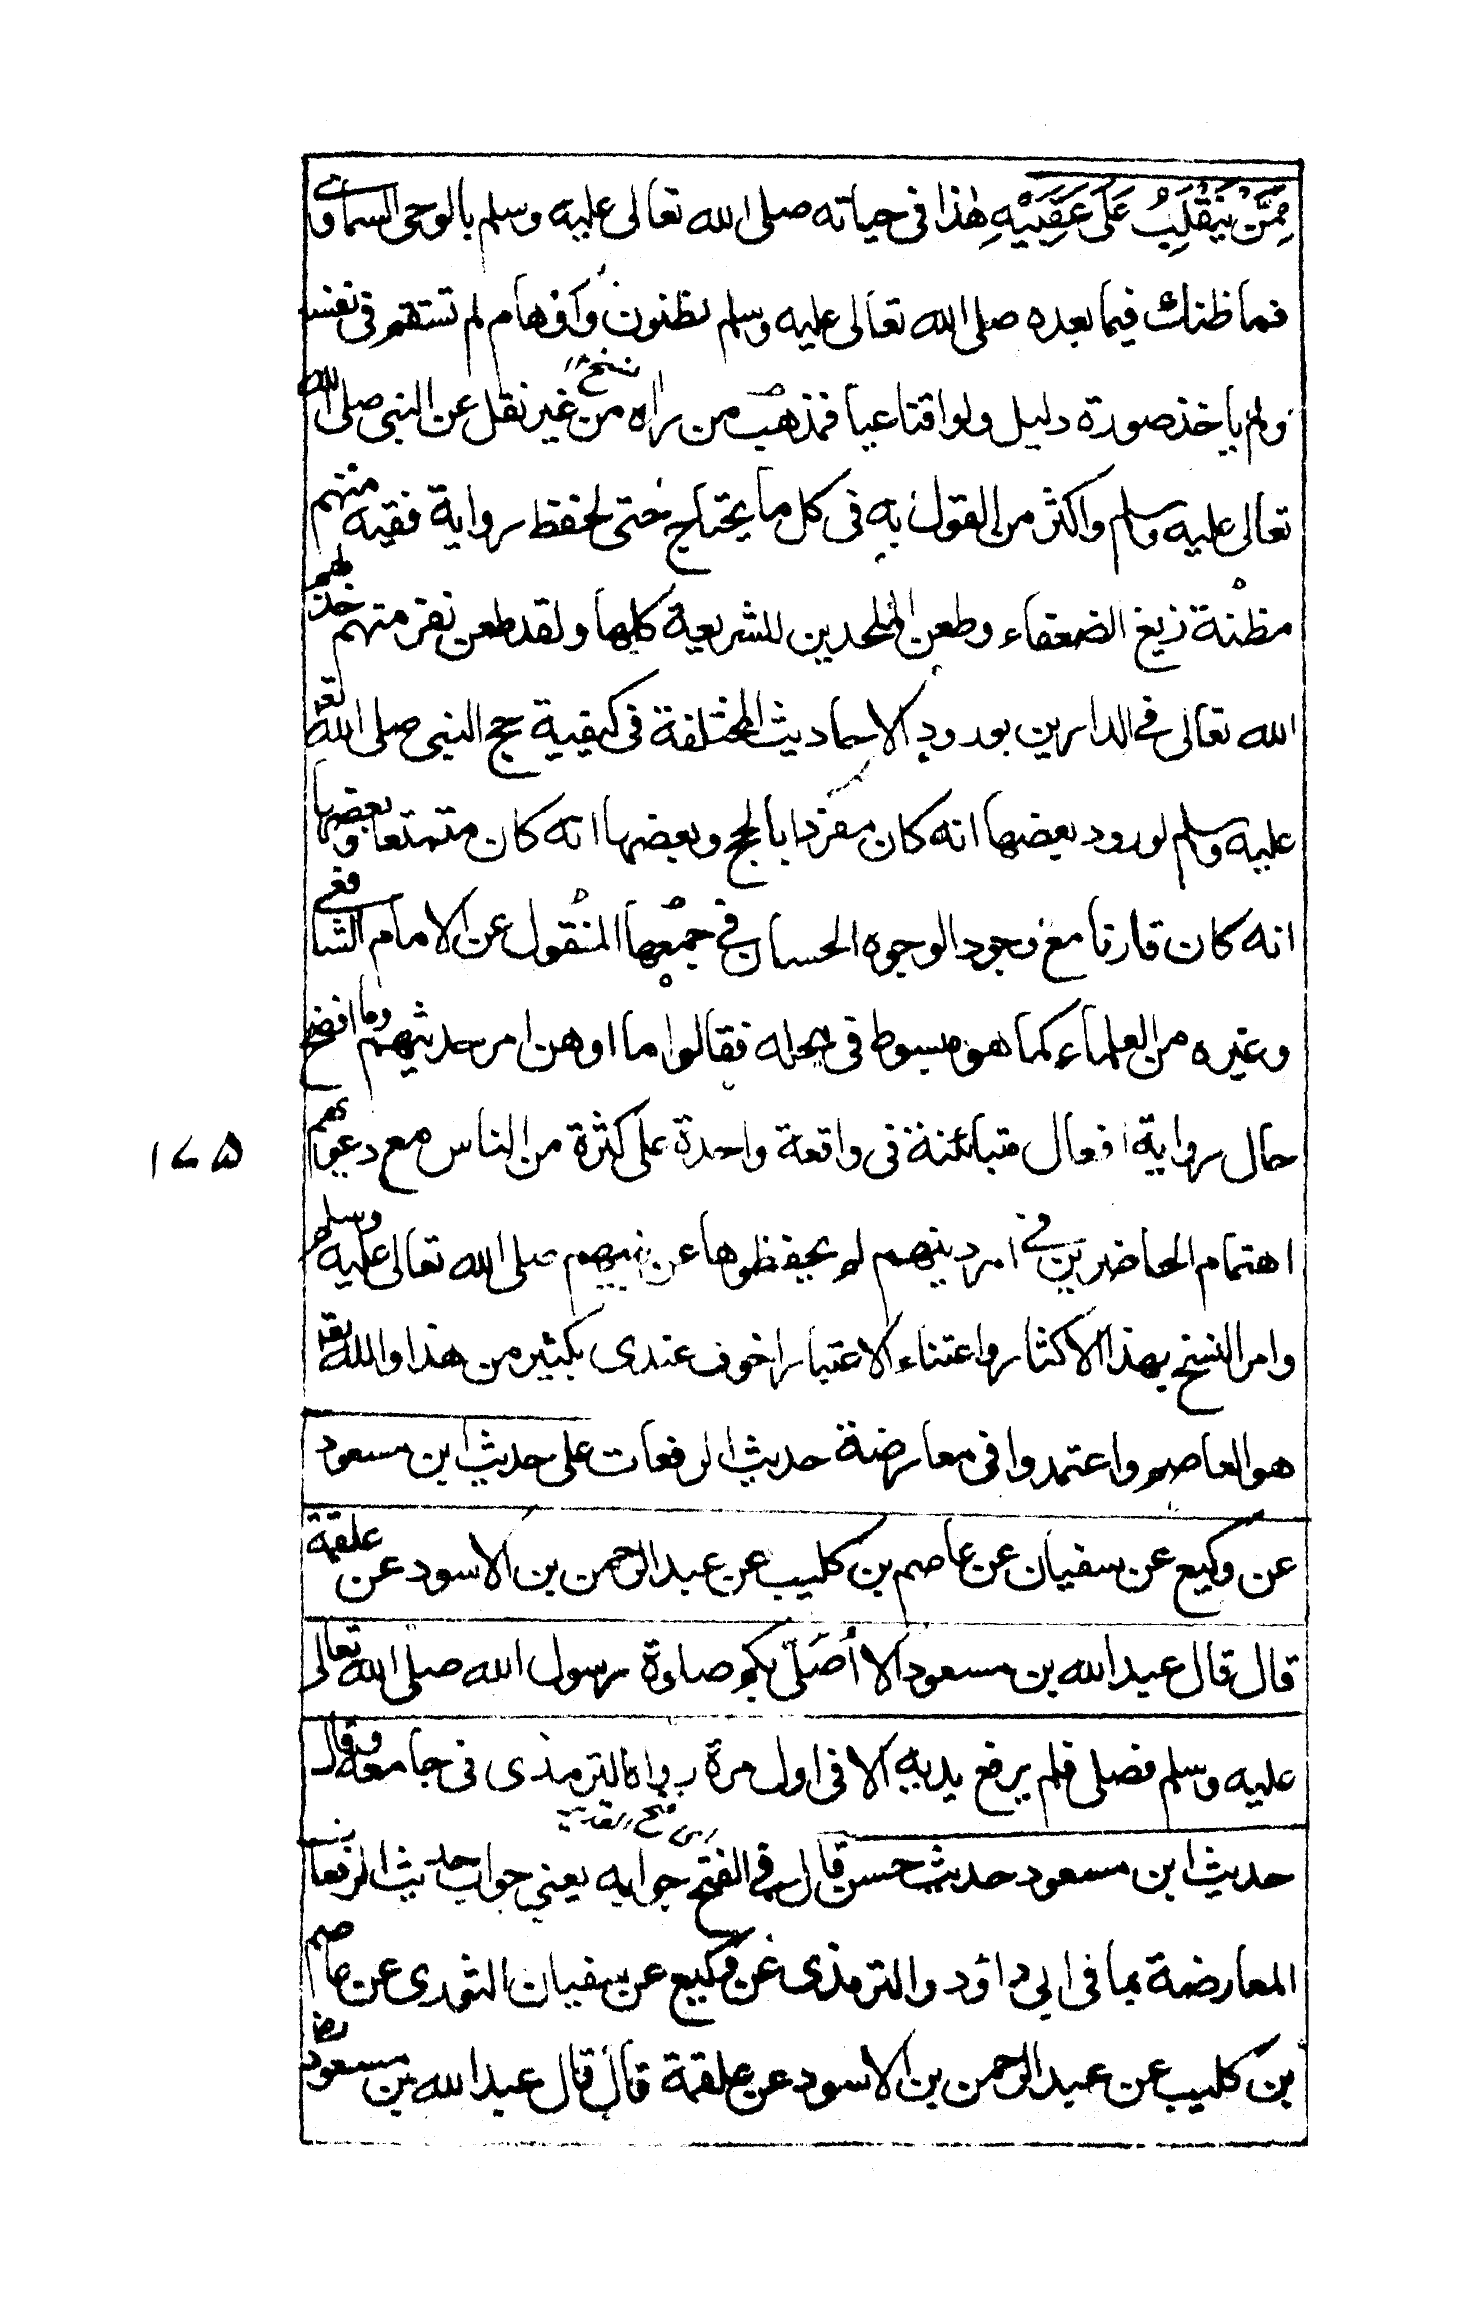 مِمَّنْ يَنْقَلِبُ عَلَى عَقِبَيْهِ هذا فى حياته صلى الله تعالى عليه وسلم بالوحى السماوى
فما ظنك فيما بعده صلى الله تعالى عليه وسلم بظنون وأوهام لم تستقم فى نفسه
ولم ياخذ صورة دليل ولو اقناعيا فمذهب من راه من غير نقل عن النبى صلى الله
نسخ
تعالى عليه وسلم واكثر من القول به فى كل ما يحتاج حتى لحفظ رواية فقيه منهم
مظنة زيغ الضعفاء وطعن الملحدين للشريعة كلها ولقد طعن نفر منهم خذلهم
الله تعالى فى الدارين بورود الاحاديث المختلفة فى كيفية حج النبى صلى الله تعالى
عليه وسلم لورود بعضها انه كان مفردا بالحج وبعضها انه كان متمتعا وبعضها
انه كان قارنا مع وجود الوجوه الحسان فى جمعها المنقول عن الامام الشافعى
وغيره من العلماء كما هو مبسوط فى محله فقالوا ما اوهن امر حديثهم وما افضح
حال رواية افعال متبائنة فى واقعة واحدة على كثرة من الناس مع دعويهم
اهتمام الحاضرين فى امر دينهم لم يحفظوها عن نبيهم صلى الله تعالى عليه وسلم
وامر النسخ بهذا الاكثار واعتناء الاعتبار اخوف عندى بكثير من هذا والله تعالى
هو العاصم واعتمدوا فى معارضة حديث الرفعات على حديث ابن مسعود
عن وكيع عن سفيان عن عاصم بن كليب عن عبد الرحمن بن الاسود عن علقمة
قال قال عبد الله بن مسعود الا أُصَلّى بكم صلوة رسول الله صلى الله تعالى
عليه وسلم فصلى فلم يرفع يديه الا فى اول مرة رواه الترمذى فى جامعه وقال
حديث ابن مسعود حديث حسن قال فى الفتح جوابه يعنى جواب حديث الرفعات
اى فتح القدير
المعارضة بما فى ابى داؤد والترمذى عن وكيع عن سفيان الثورى عن عاصم
بن كليب عن عبد الرحمن بن الاسود عن علقمة قال قال عبد الله بن مسعود رض
١٧٥